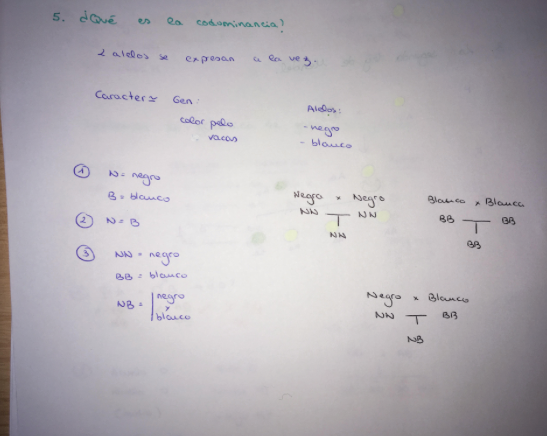 5. ¿Qué es la codominancia?
2 alelos se expresan a la vez.
Caracter ≃ Gen:
color pelo
vacas
Alelos:
- negro
- blanco
① N = negro
B = blanco
② N = B
③ NN = negro
BB = blanco
NB = negro
y
blanco
Negro x Negro
NN NN
NN
Blanco x Blanco
BB BB
BB
Negro x Blanco
NN BB
NB